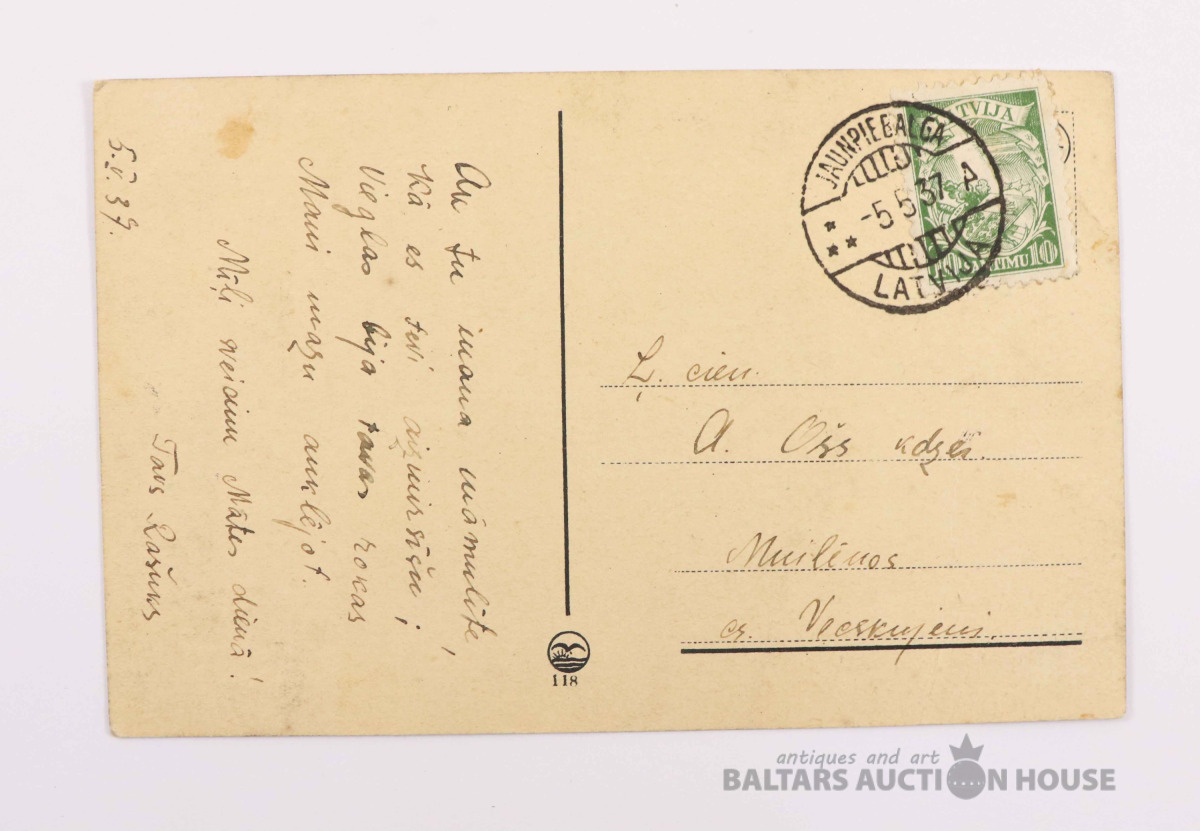 5. V 37.
Au tu mana māmulite,
Kā es tevi aizmirsīšu;
Vieglas bija tavas rokas
Mani mazu auklējot.
Mīļi sveicieni Mātes dienā!
Tavs
118
JAUNPIEBALGA
-5 5 37 A
LATVIJA
LATVIJA
10 SANTIMU 10
Ļ. cien.
A. Ošs kdzei.
Muilēnos
Vecskujenē.
antiques and art
BALTARS AUCTION HOUSE